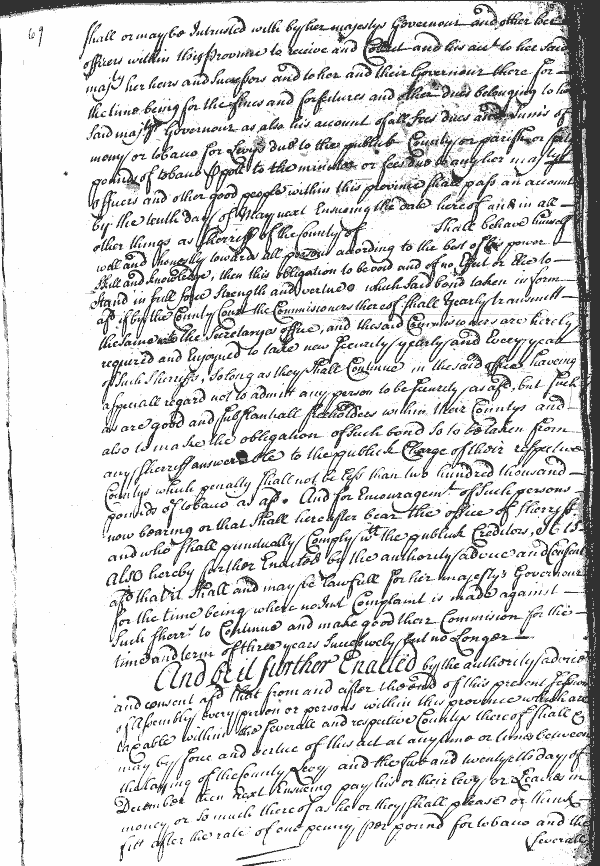 69
shall or may be Intrusted with by her majestys Governour and other her
officers within this Province to receive and Collect and his acct to her said
majty her heirs and Successors and to her and their Governour there for
the time being for the fines and forfeitures and other dues belonging to her
said majtys Governour as also his account of all fees dues and Summs of
mony or tobacco for Levys due to the publick County or parish or forty
pounds of tobacco pr poll to the minister or fees due to any her majtys
officers and other good people within this province shall pass an account
by the tenth day of May next Ensuing the date hereof and in all
other things as Sherriff of the County of shall behave himself
well and honestly towards all persons according to the best of his power
Skill and knowledge, then this obligation to be void and of no Effect or else to
stand in full force strength and vertue which said bond taken in form
afd if by the County Court the Commissioners thereof shall yearly transmitt
the same to the Secretarys office, and the said Commissioners are hereby
required and Enjoyned to take new Security yearly and every year
of such Sherriffs, so long as they shall Continue in the said office having
a speciall regard not to admitt any person to be Security as afd. but such
as are good and substantiall freeholders within their Countys and
also to make the obligation of such bond so to be taken from
any Sherriff answerable to the publick Charge of their respective
Countys which penalty shall not be less than two hundred thousand
pounds of tobacco as afd. And for Encouragemt. of such persons
now bearing or that shall hereafter bear the office of Sherriffs
and who shall punctually Comply wth the publick Creditors, It is
also hereby further Enacted by the authority advice and Consent
afd that it shall and may be lawfull for her majestys Governour
for the time being where no Just Complaint is made against
such Sherr. to Continue and make good their Commission for the
time and term of three years Successively but no Longer
And be it further Enacted by the authority advice
and consent afd that from and after the end of this present Session
of Assembly every person or persons within this province who are
taxable within the severall and respective Countys thereof shall &
may by force and vertue of this act at any time or times between
the laying of the County Levy and the five and twentyeth day of
December then next Ensuing pay his or their levy or Leavies in
money or so much thereof as he or they shall please or think
fitt after the rate of one penny per pound for tobacco and the
severall